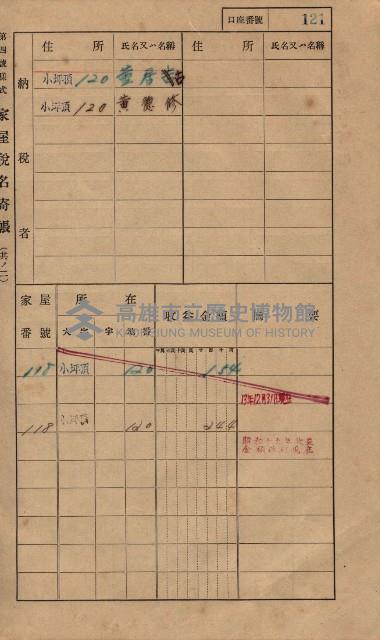 第四號樣式 家屋稅名寄帳 (共ノ二)
口座番號 121
納稅者
住所 氏名又ハ名稱 住所 氏名又ハ名稱
小坪頂 120 黃居
小坪頂 120 黃德修
家屋番號 所在 大字 字 地番 收益金額 摘要
118 小坪頂 120 184
13年12月31日現在
118 小坪頂 120 244
昭和十五年收益
金額改訂現在
高雄市立歷史博物館
KAOHSIUNG MUSEUM OF HISTORY